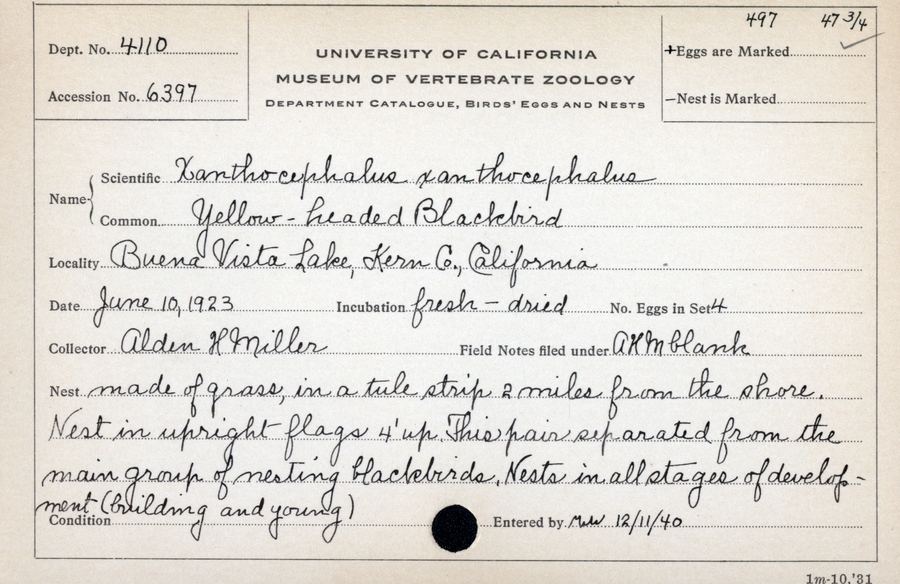 497 47 3/4
Dept. No. 4110
UNIVERSITY OF CALIFORNIA
+Eggs are Marked
MUSEUM OF VERTEBRATE ZOOLOGY
Accession No. 6397
DEPARTMENT CATALOGUE, BIRDS' EGGS AND NESTS
—Nest is Marked
Name { Scientific Xanthocephalus xanthocephalus
Common Yellow-headed Blackbird
Locality Buena Vista Lake, Kern Co., California
Date June 10, 1923 Incubation fresh - dried No. Eggs in Set 4
Collector Alden H Miller Field Notes filed under AHM blank
Nest made of grass, in a tule strip 2 miles from the shore.
Nest in upright flags 4' up. This pair separated from the
main group of nesting blackbirds. Nests in all stages of develop-
ment (building and young)
Condition Entered by 12/11/40
1m-10,'31